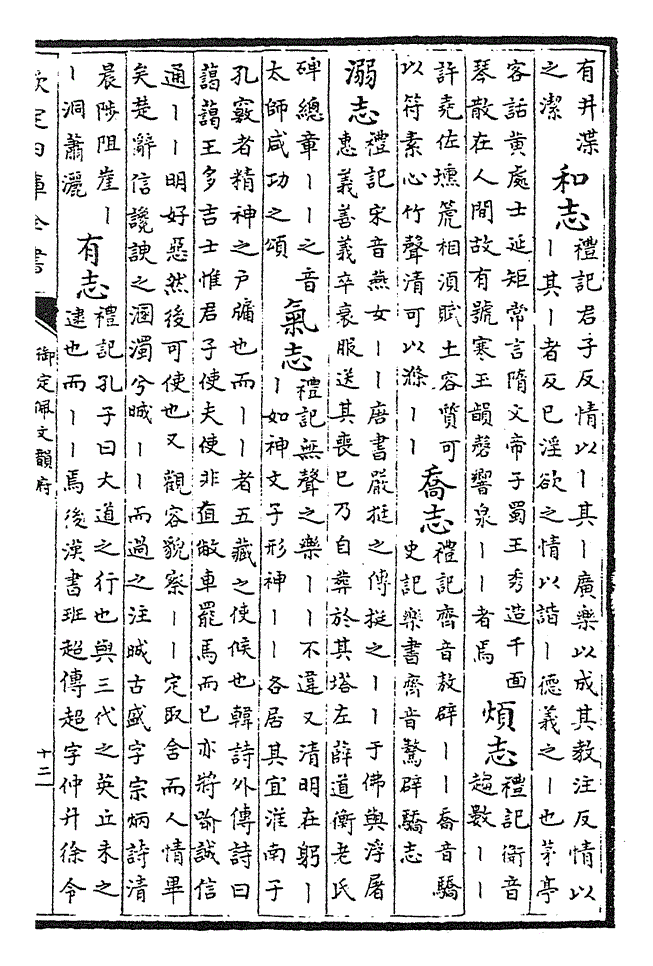 有井渫
之潔
和志
禮記君子反情以丨其丨廣樂以成其教注反情以
丨其丨者反已淫欲之情以諧丨德義之丨也茅亭
客話黄處士延矩常言隋文帝子蜀王秀造千面
琴散在人間故有號寒玉韻磬響泉丨丨者焉
煩志
禮記衛音
趨數丨丨
許堯佐壎箎相須賦土容質可
以符素心竹聲清可以滌丨丨
喬志
禮記齊音敖辟丨丨喬音驕
史記樂書齊音驁辟驕志
溺志
禮記宋音燕女丨丨唐書嚴挺之傳挺之丨丨于佛與浮屠
惠義善義卒衰服送其喪已乃自葬於其塔左薛道衡老氏
碑總章丨丨之音
太師咸功之頌
氣志
禮記無聲之樂丨丨不違又清明在躬丨
丨如神文子形神丨丨各居其宜淮南子
孔竅者精神之户牖也而丨丨者五藏之使候也韓詩外傳詩曰
藹藹王多吉士惟君子使夫使非直敝車罷馬而已亦將喻誠信
通丨丨明好惡然後可使也又觀容貌察丨丨定取舍而人情畢
矣楚辭信讒諛之溷濁兮晠丨丨而過之注晠古盛字宗炳詩清
晨陟阻崖丨
丨洞蕭灑
有志
禮記孔子曰大道之行也與三代之英丘未之
逮也而丨丨焉後漢書班超傳超字仲升徐令
欽定四庫全書
御定佩文韻府
十三